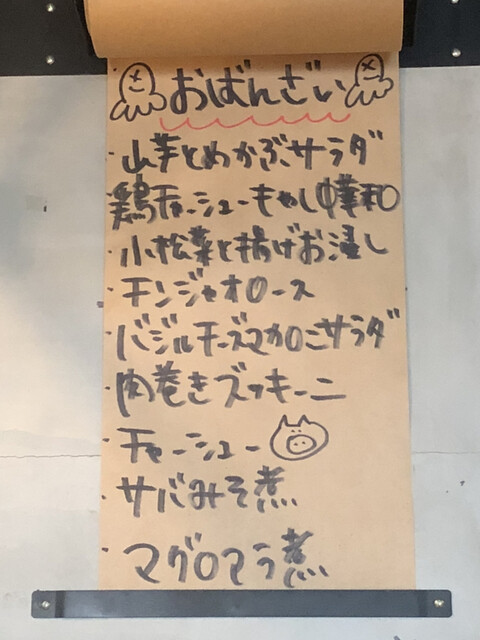 おばんざい
・山芋とめかぶサラダ
・鶏チャーシューキャし中華和
・小松菜と揚げお浸し
・チンジャオロース
・バジルチーズマカロニサラダ
・肉巻きズッキーニ
・チャーシュー
・サバみそ煮
・マグロアラ煮